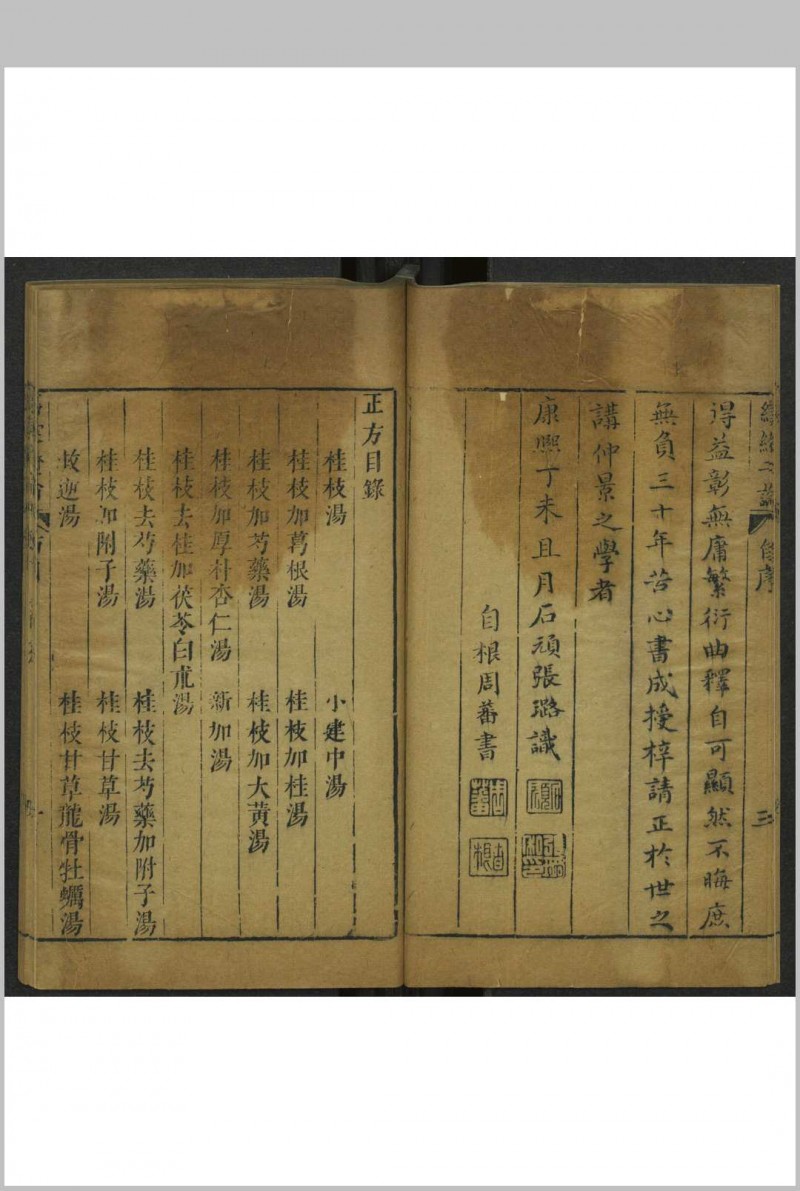 自序
三
得益彰無庸繁衍曲釋自可顯然不晦庶
無負三十年苦心書成授梓請正於世之
講仲景之學者
康熙丁未且月石頑張璐識
自根周蕃書
周蕃
自根
正方目錄
桂枝湯
小建中湯
桂枝加葛根湯
桂枝加桂湯
桂枝加芍藥湯
桂枝加大黃湯
桂枝加厚朴杏仁湯
新加湯
桂枝去桂加茯苓白朮湯
桂枝去芍藥湯
桂枝去芍藥加附子湯
桂枝加附子湯
桂枝甘草湯
救逆湯
桂枝甘草龍骨牡蠣湯